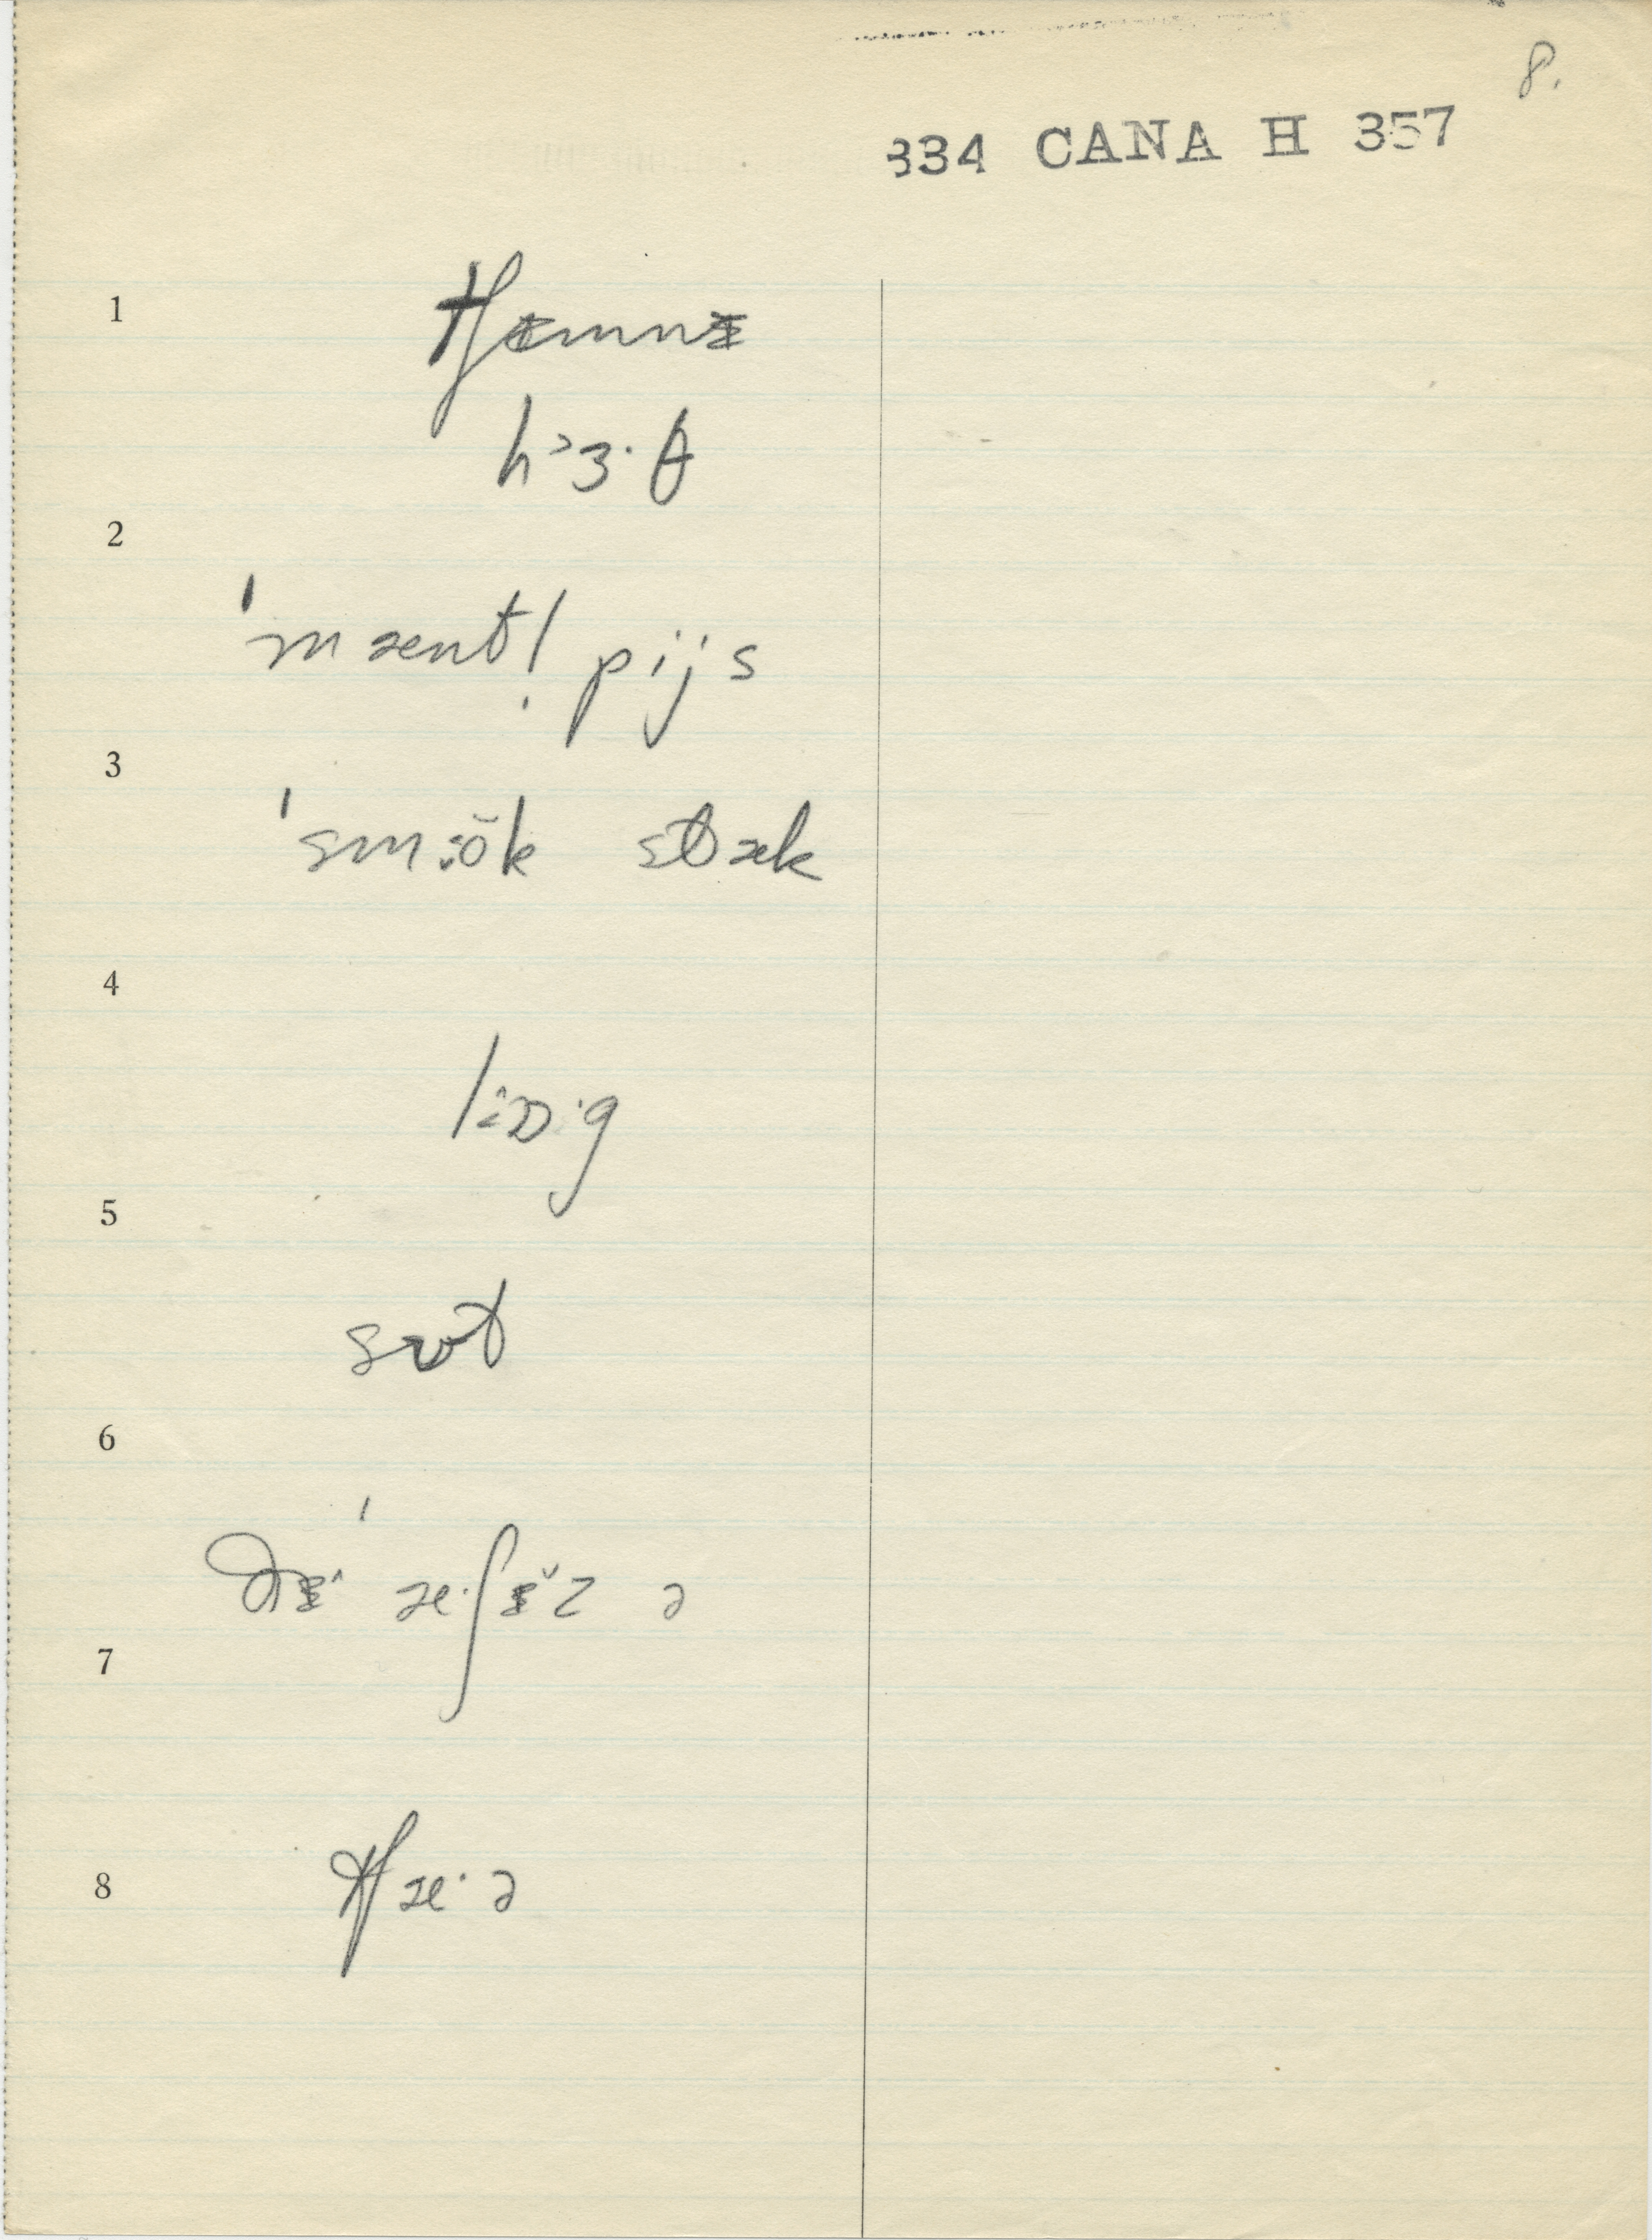 8.
334 CANA H 357
1
tʃɪmnɪ
hɜ˃·θ
2
ˈmænt! pijs
3
ˈsm:ŏk stæk
4
5
sʊt
6
ðɪ^ ˈæ·ʃɪ̆z ə
7
8 tʃæ·ə